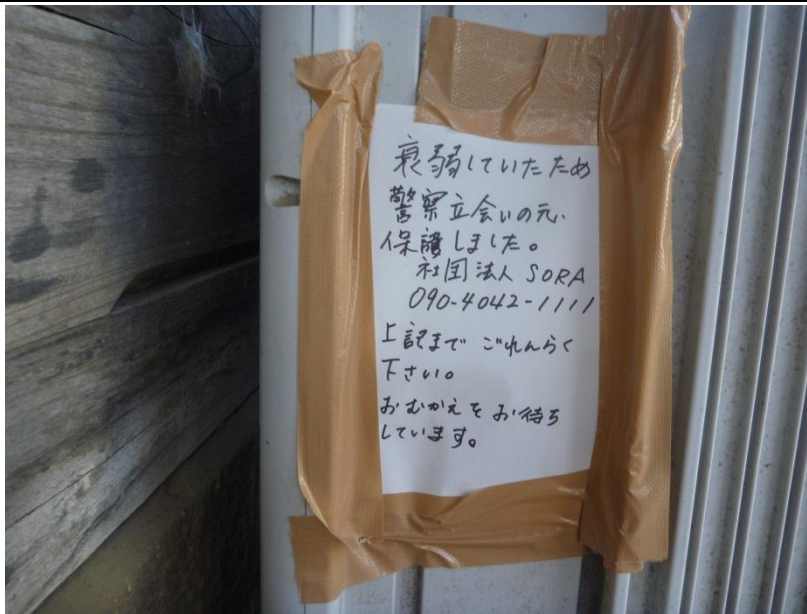 衰弱していたため
警察立会いの元、
保護しました。
社団法人 SORA
090-4042-1111
上記まで ごれんらく
下さい。
おむかえを お待ち
しています。